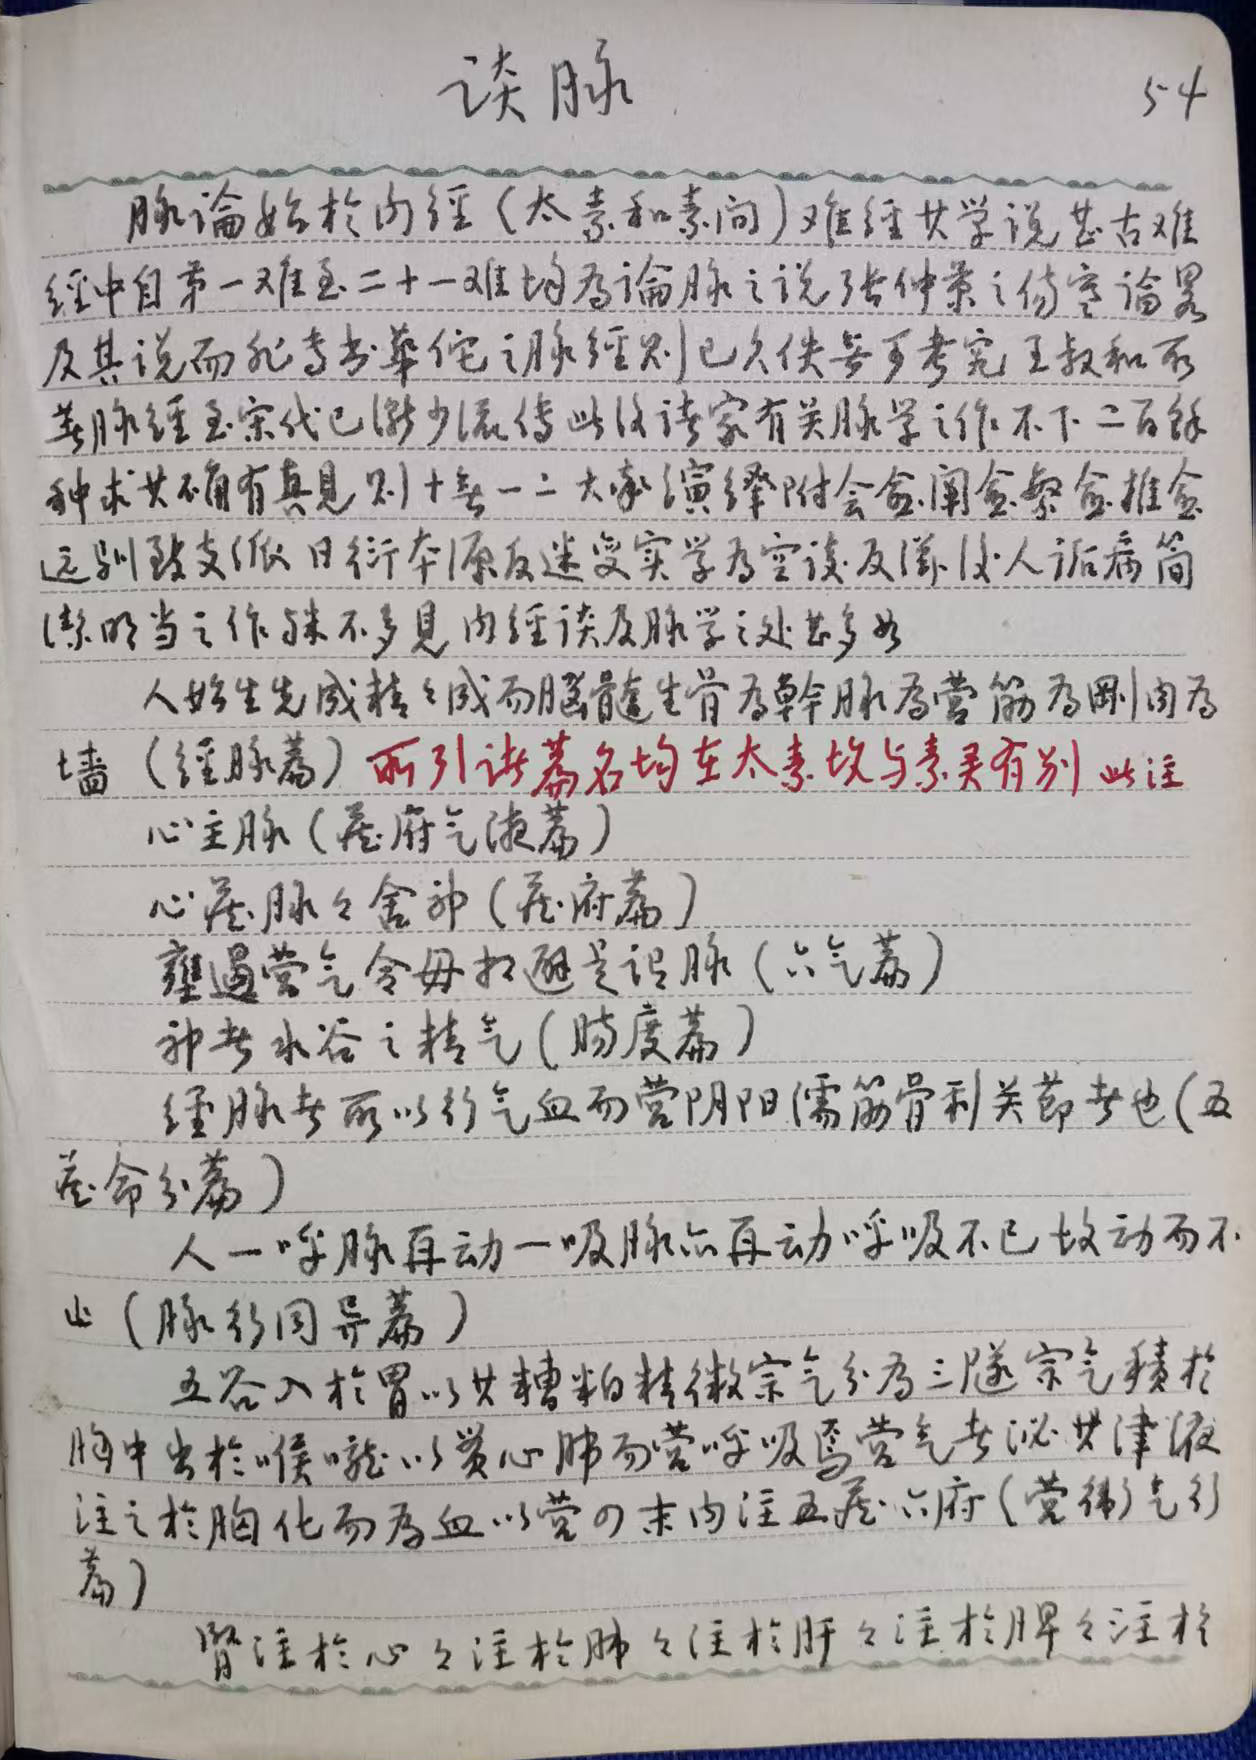 谈脉
54
脉論始於内經（太素和素问）难經其学说甚古难
經中自第一难至二十一难均为論脉之说张仲景之伤寒論畧
及其说而非专书華佗之脉經则已久佚無可考究王叔和所
著脉經至宋代已漸少流傳此後諸家有关脉学之作不下二百餘
种求其不有真見则十無一二大率演繹附会愈闡愈繁愈推愈
远别致支派日衍本源反迷变实学为空谈反滋後人诟病简
潔明当之作殊不多見内經谈及脉学之处甚多如
人始生先成精々成而腦髓生骨为幹脉为营筋为剛肉为
墙（經脉篇）所引諸篇名均在太素故与素灵有别此注
心主脉（蔵府气液篇）
心蔵脉々舍神（蔵府篇）
壅遏营气令毋所避是谓脉（六气篇）
神者水谷之精气（腸度篇）
經脉者所以行气血而营阴阳濡筋骨利关節者也（五
蔵命分篇）
人一呼脉再动一吸脉亦再动呼吸不已故动而不
止（脉行同异篇）
五谷入於胃以其糟粕精微宗气分为三隧宗气積於
胸中出於喉嚨以贯心肺而营呼吸焉营气者泌其津液
注之於胸化而为血以营四末内注五蔵六府（营衛气行
篇）
腎注於心々注於肺々注於肝々注於脾々注於